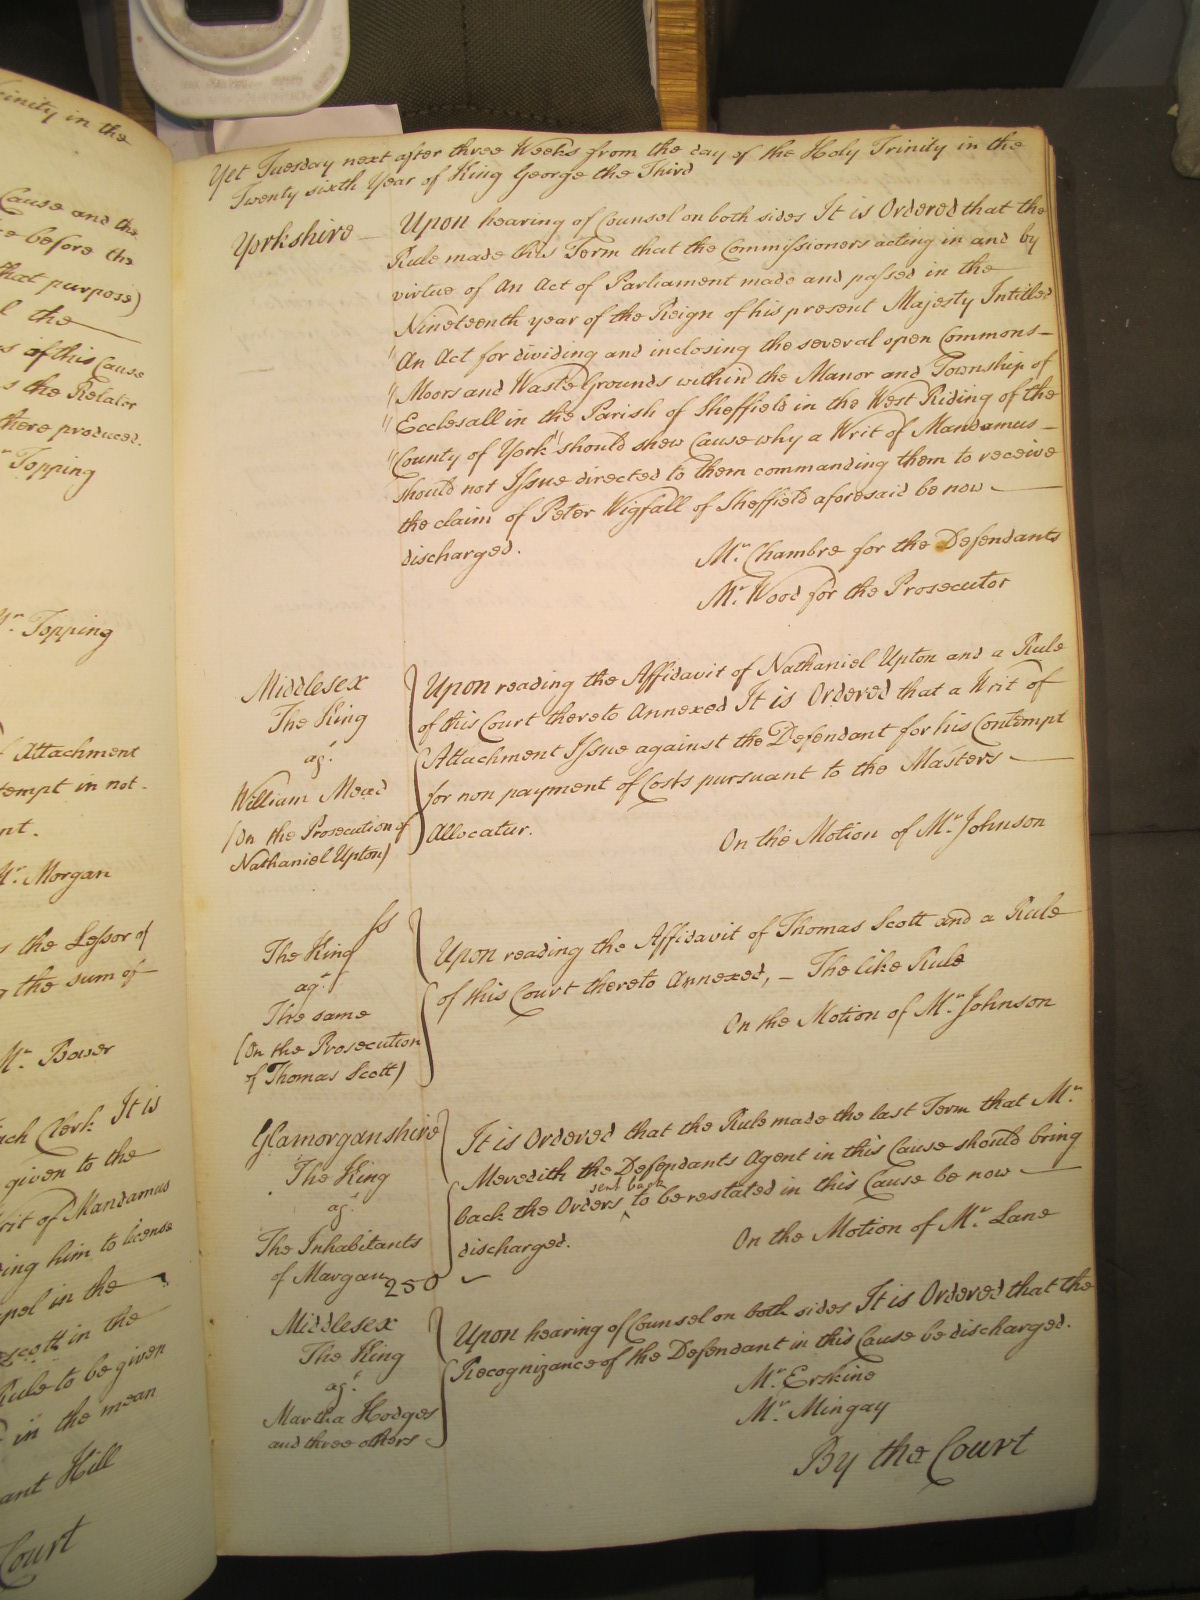 rinity in the
Cause and the
ce before the
that purpose)
l the
s of this Cause
s the Relator
there produced.
r Topping
Mr. Topping
f Attachment
tempt in not
nt.
Mr. Morgan
s the Lessor of
g the sum of
Mr. Bower
ach Clerk It is
given to the
rit of Mandamus
ing him to license
pel in the
escott in the
Rule to be given
in the mean
ant Hill
Court
Yet Tuesday next after three Weeks from the day of the Holy Trinity in the
Twenty sixth Year of King George the Third
Yorkshire
Upon hearing of Counsel on both sides It is Ordered that the
Rule made this Term that the Commissioners acting in and by
virtue of An Act of Parliament made and passed in the
Nineteenth year of the Reign of his present Majesty Intitled
"An Act for dividing and inclosing the several open Commons
"Moors and Waste Grounds within the Manor and Township of
"Ecclesall in the Parish of Sheffield in the West Riding of the
"County of York" should shew Cause why a Writ of Mandamus
should not Issue directed to them commanding them to receive
the claim of Peter Wigfall of Sheffield aforesaid be now
discharged.
Mr. Chambre for the Defendants
Mr. Wood for the Prosecutor
Middlesex
The King
agt.
William Mead
(On the Prosecution of
Nathaniel Upton)
Upon reading the Affidavit of Nathaniel Upton and a Rule
of this Court thereto Annexed It is Ordered that a Writ of
Attachment Issue against the Defendant for his Contempt
for non payment of Costs pursuant to the Masters
Allocatur.
On the Motion of Mr. Johnson
ss
The King
agt.
The same
(On the Prosecution
of Thomas Scott)
Upon reading the Affidavit of Thomas Scott and a Rule
of this Court thereto Annexed, – The like Rule
On the Motion of Mr. Johnson
Glamorganshire
The King
agt.
The Inhabitants
of Margan
250
It is Ordered that the Rule made the last Term that Mr.
Meredith the Defendants Agent in this Cause should bring
sent back
back the Orders ^ to be restated in this Cause be now
discharged.
On the Motion of Mr. Lane
Middlesex
The King
agt.
Martha Hodges
and three others
Upon hearing of Counsel on both sides It is Ordered that the
Recognizance of the Defendant in this Cause be discharged.
Mr. Erskine
Mr. Mingay
By the Court